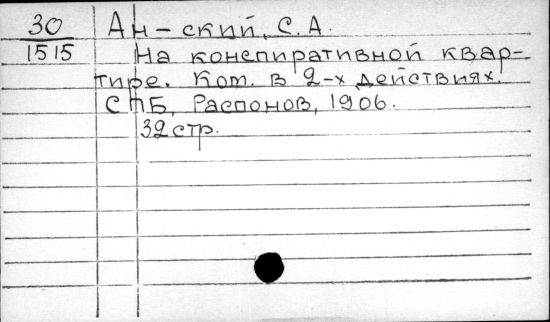 30 Ан-ский, С. А.
1515 На конспиративной квар-
тире. Ком. в 2-х действиях.
СПБ, Распопов, 1906.
32 стр.